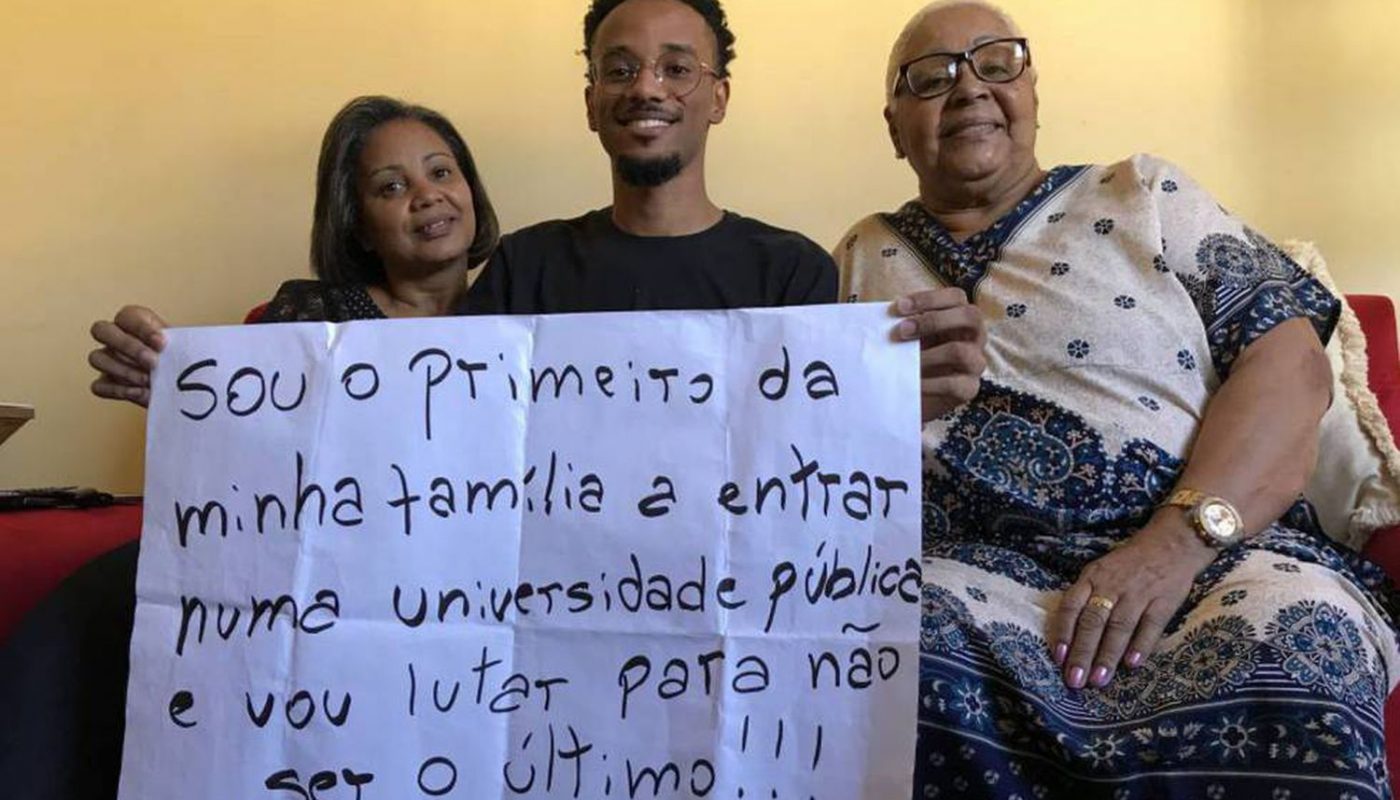 Sou o primeiro da
minha família a entrar
numa universidade pública
e vou lutar para não
ser o último!!!